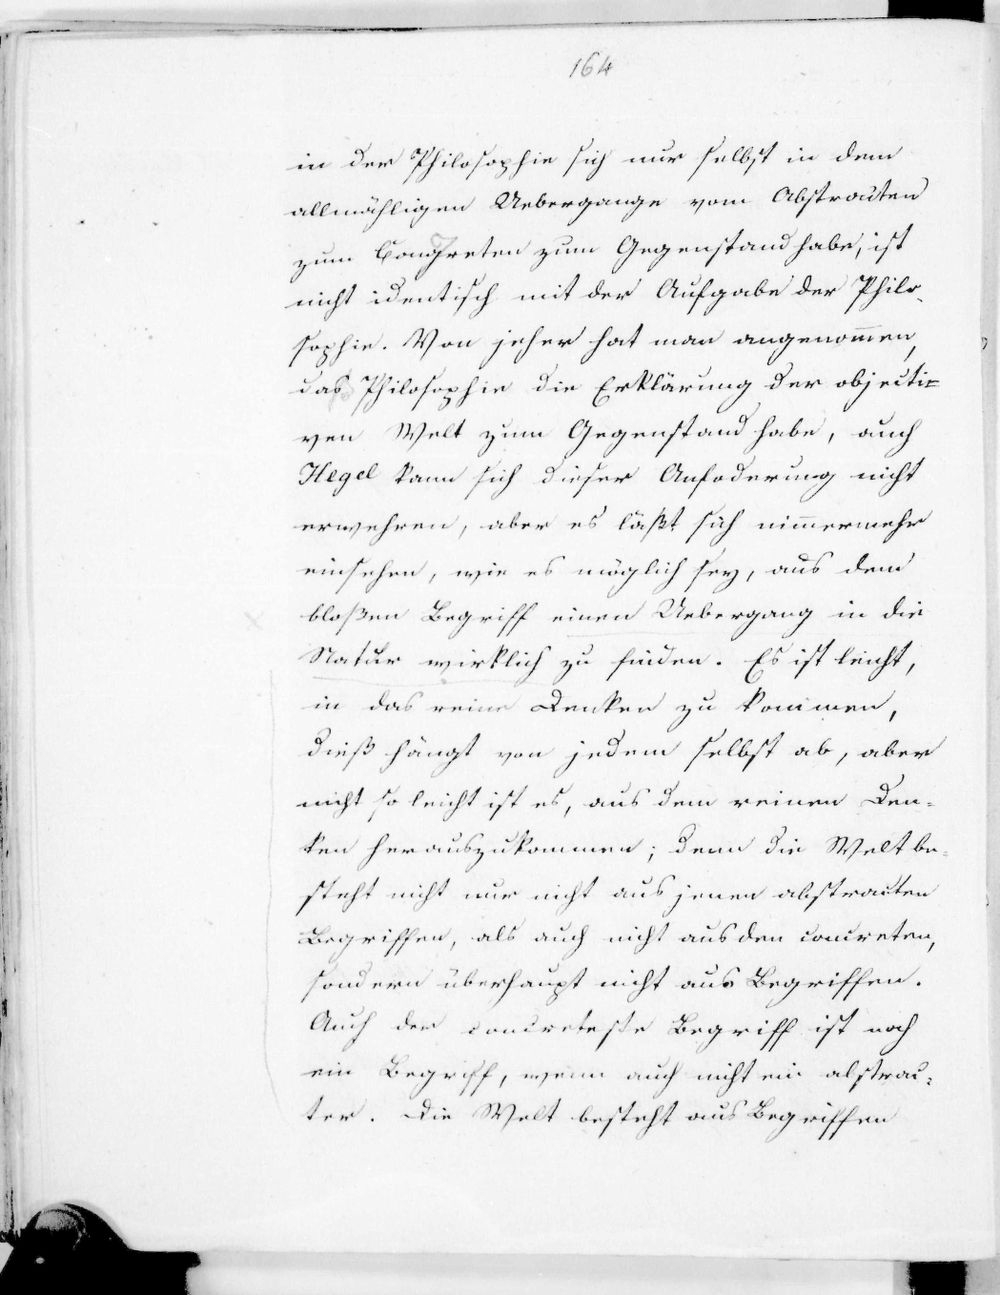 164
in der Philosophie sich nur selbst in dem
allmähligen Uebergange vom Abstracten
zum Congreten zum Gegenstand habe, ist
nicht identisch mit der Aufgabe der Philo-
sophie. Von jeher hat man angenom̅en,
das Philosophie die Erklärung der objecti=
ven Welt zum Gegenstand habe, auch
Hegel kann sich dieser Anfoderung nicht
erwehren, aber es läßt sich nim̅ermehr
einsehen, wie es möglich sey, aus dem
bloßen Begriff einen Uebergang in die
Natur wirklich zu finden. Es ist leicht,
in das reine Denken zu kommen,
dieß hängt von jedem selbst ab, aber
nicht so leicht ist es, aus dem reinen Den=
ken herauszukommen; denn die Welt be=
steht nicht nur nicht aus jenen abstracten
Begriffen, als auch nicht aus den concreten,
sondern überhaupt nicht aus Begriffen.
Auch der concreteste Begriff ist noch
ein Begriff, wenn auch nicht ein abstrac=
ter. Die Welt besteht aus Begriffen